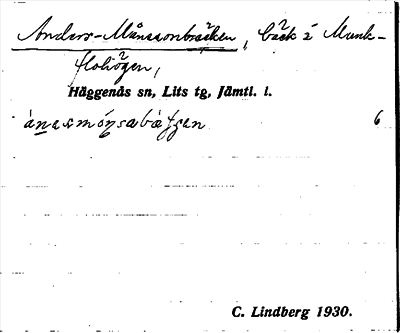 Anders-Månssonbäcken, bäck å Munk-
flohögen,
Häggenås sn, Lits tg, Jämtl. l.
6
C. Lindberg 1930.